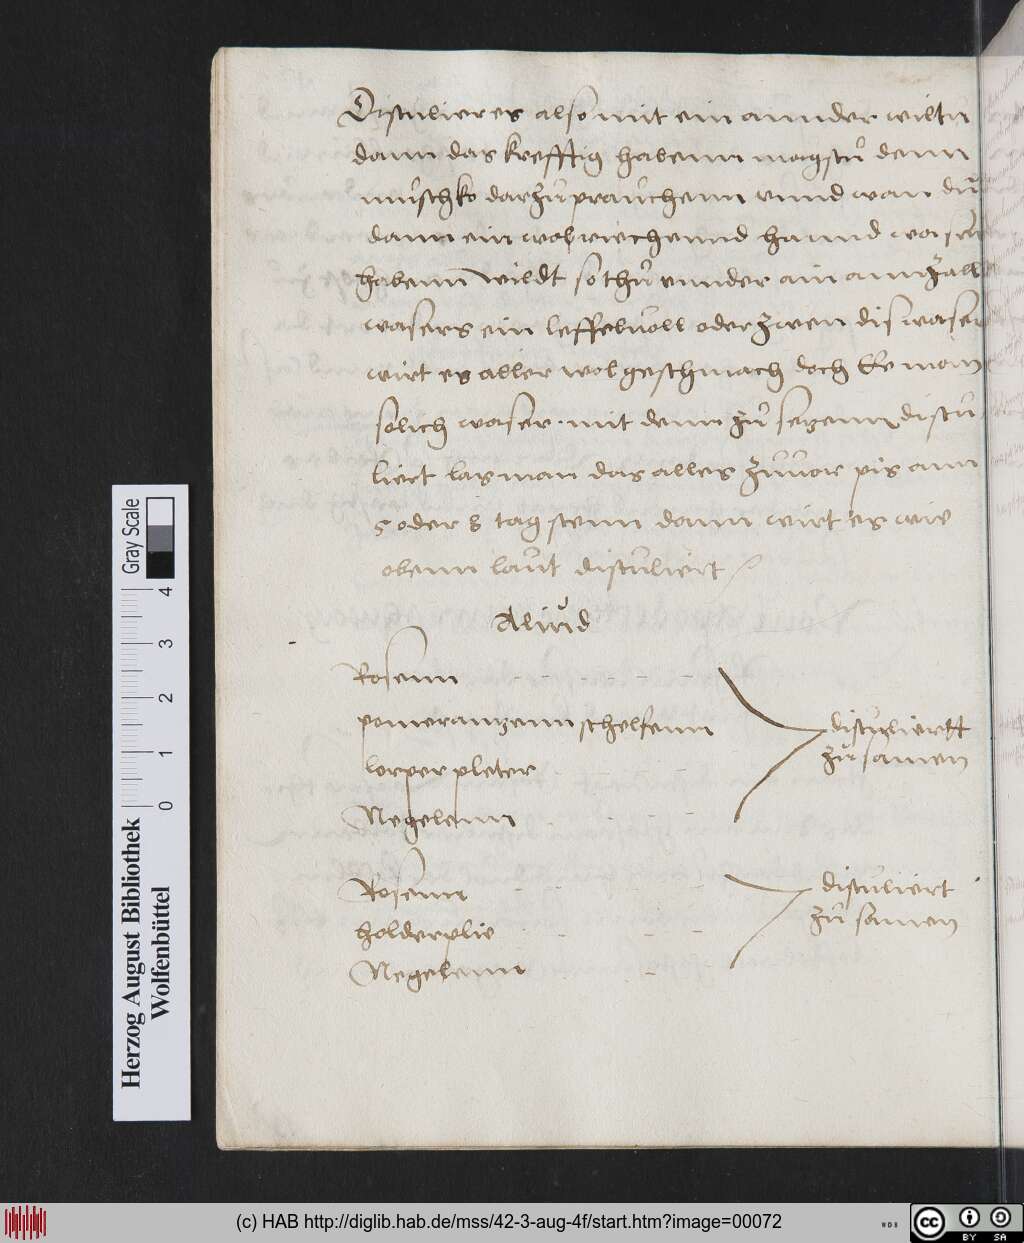 Distulier es also mit ein annder wiltu
dann das krefftig habenn magstu denn
muschko darzu praúchenn vnnd wan du
dann ein wolriechennd hannd waser
habenn wildt so thú vnnder ain annzall
wasers ein leffelvoll oder zwen dis waser
wirt es alles wolgeschmach doch Ee man
solich waser mit denn zú sezenn distú
liert las man das alles zúúor pis ann
5 oder 8 tag stenn dann wirt es wie
obenn laút distúliert
Aliúd
Rosenn
pomeranzenn schelfenn
lorper pleter
Negelenn
distúliertt
zú samen
Rosenn
holderplie
Negelenn
distúliert
zú samen
Gray Scale
0 1 2 3 4
Herzog August Bibliothek
Wolfenbüttel
(c) HAB http://diglib.hab.de/mss/42-3-aug-4f/start.htm?image=00072
WDB
cc BY SA